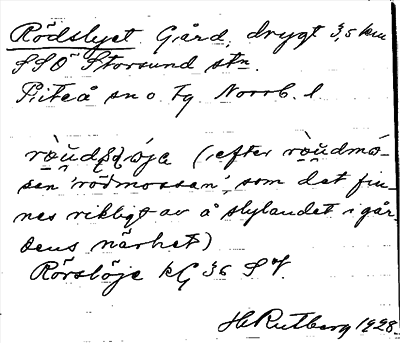 Rödslyet Gård, drygt 3,5 km
SSO Storsund stn.
Piteå sn o. tg Norrb. l
(efter
sen 'rödmossan', som det fin-
nes rikligt av å slylandet i går-
dens närhet)
Rörslöje kG 36 SV.
H Rutberg 1928.